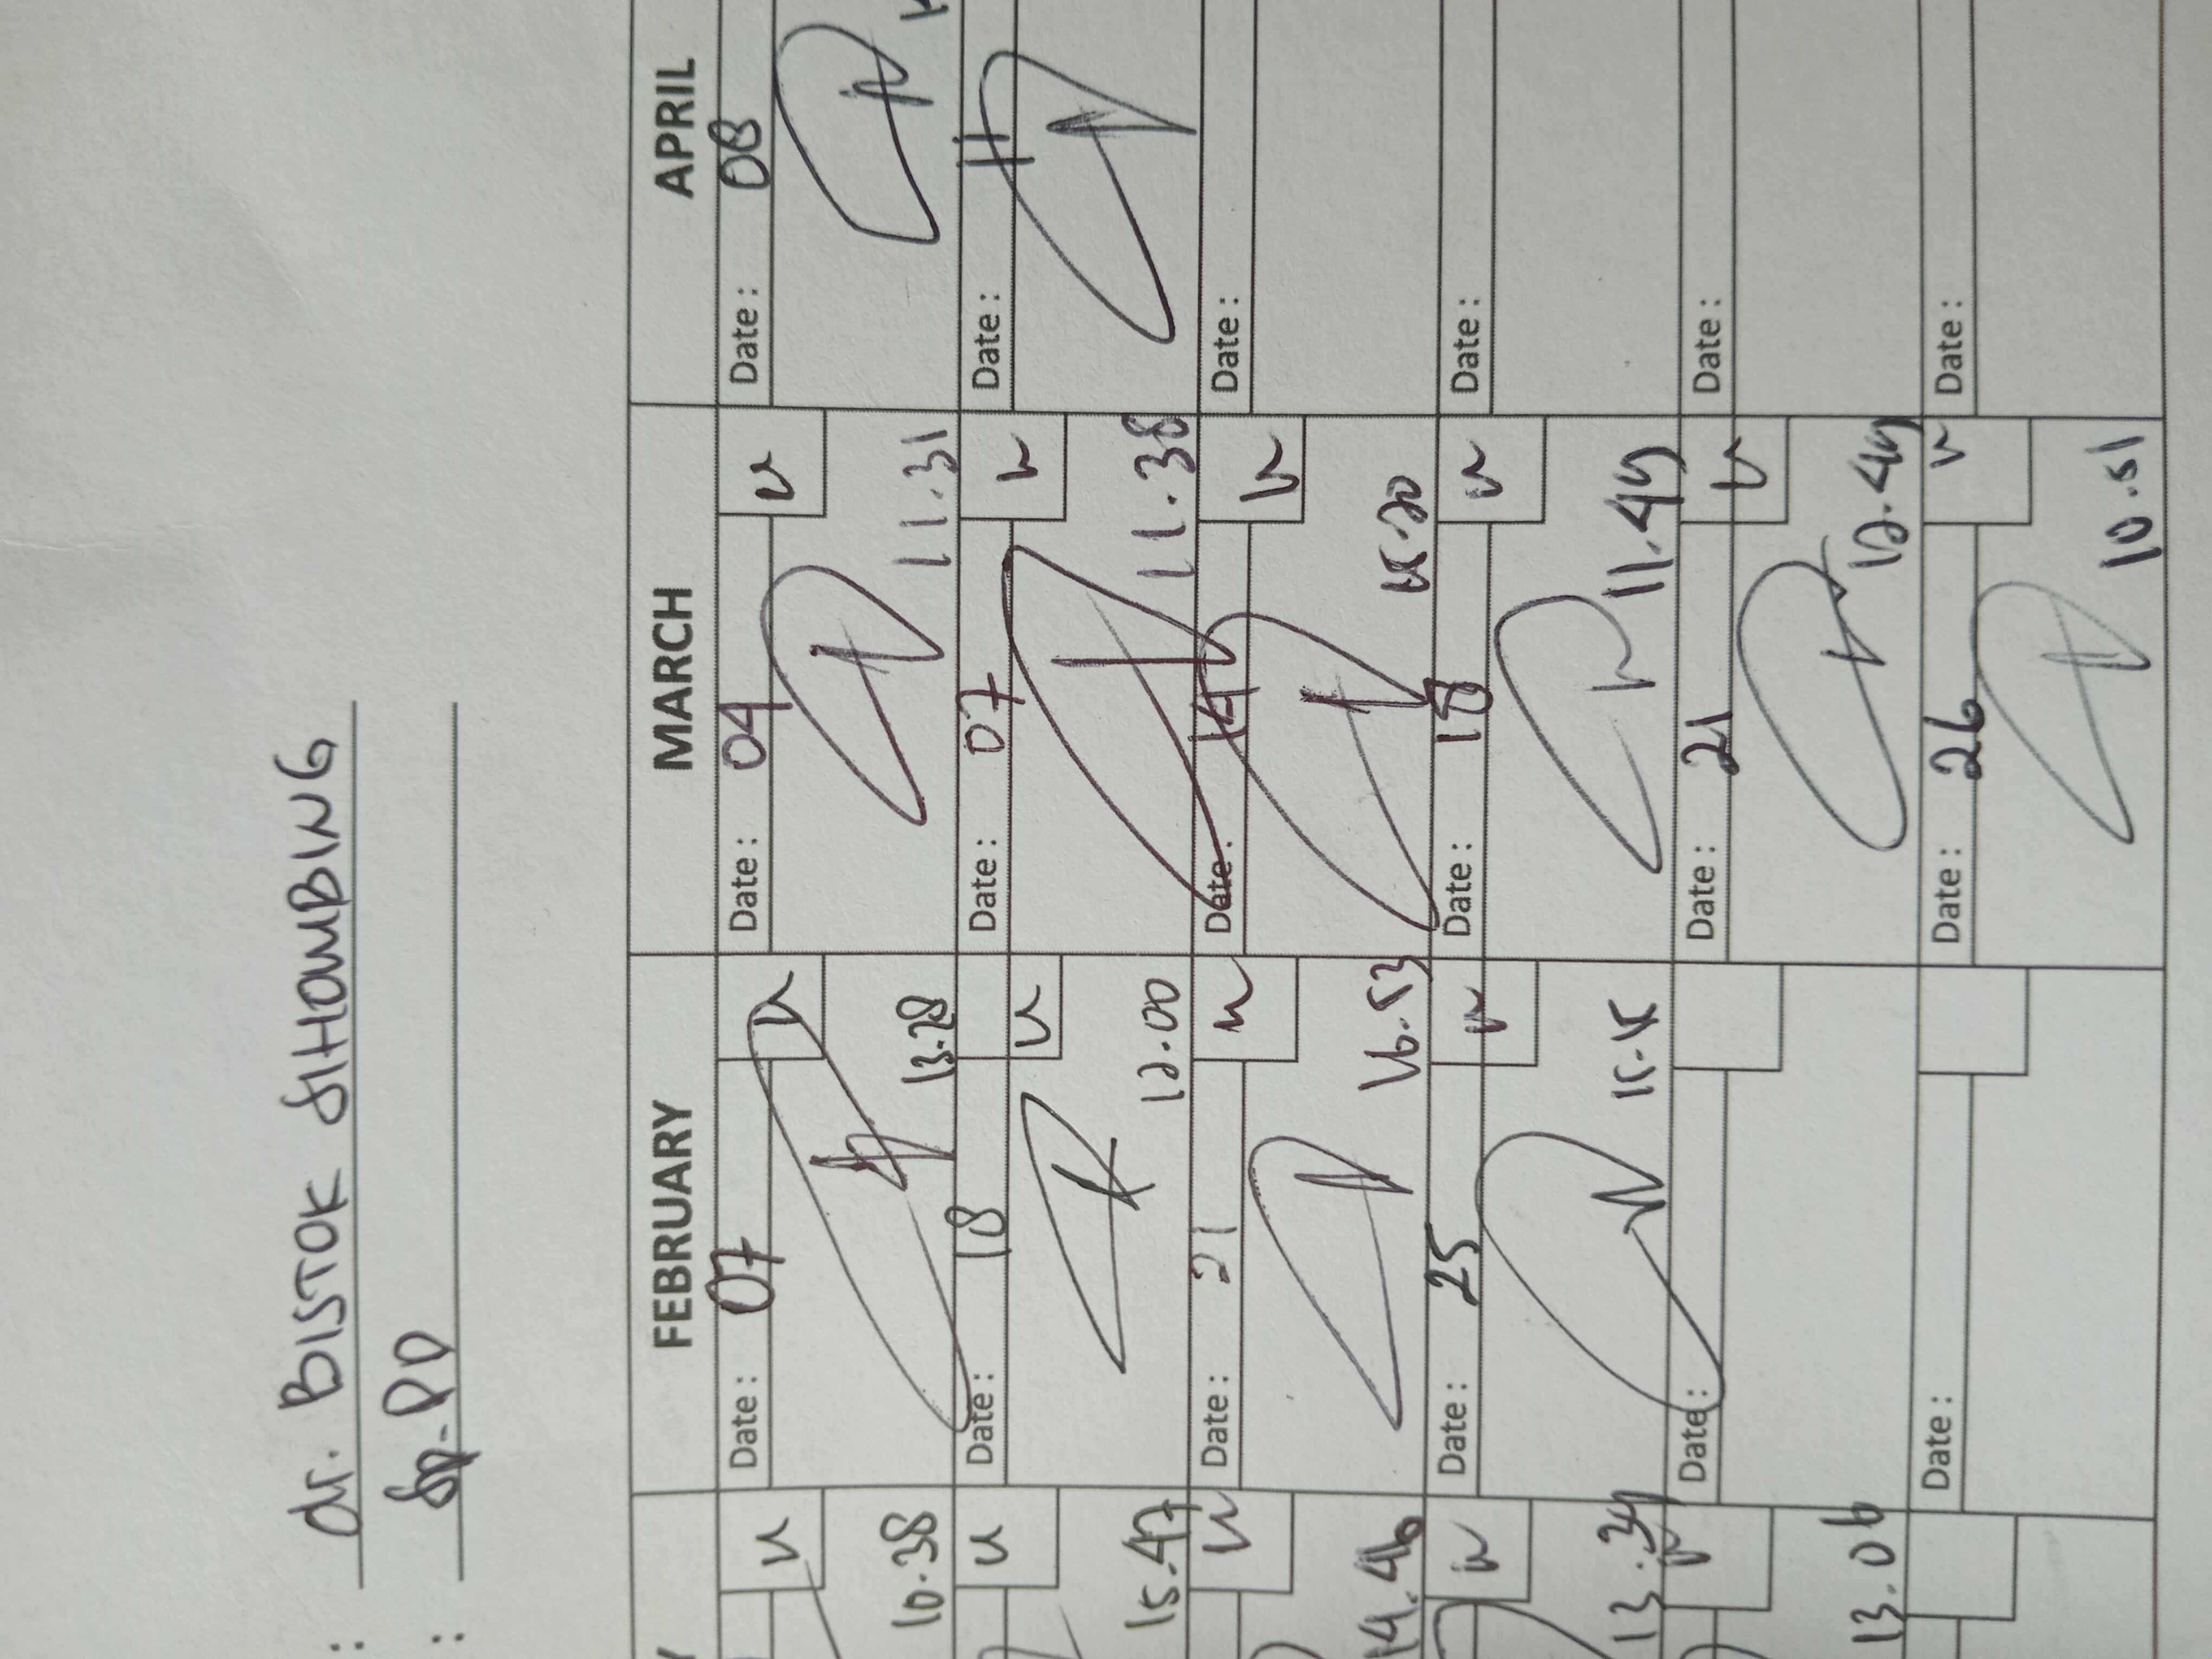 : dr. BISTOK SIHOMBING
: Sp.PD
Y FEBRUARY MARCH APRIL
v Date : 07 v Date : 04 v Date : 08
10.38 13.28 11.31
v Date : 18 v Date : 07 v Date : 11
15.47 12.00 11.38
v Date : 21 v Date : 14 v Date :
14.46 16.53 15.20
v Date : 25 v Date : 18 v Date :
13.34 15.15 11.49
v Date : Date : 21 v Date :
13.06 12.49
Date : Date : 26 v Date :
10.51